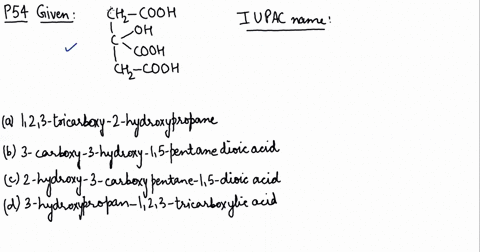 P54 Given: CH2-COOH IUPAC name:
C OH
COOH
CH2-COOH
(a) 1,2,3-tricarboxy-2-hydroxypropane
(b) 3-carboxy-3-hydroxy-1,5-pentane dioic acid
(c) 2-hydroxy-3-carboxy pentane-1,5-dioic acid
(d) 3-hydroxypropan-1,2,3-tricarboxylic acid